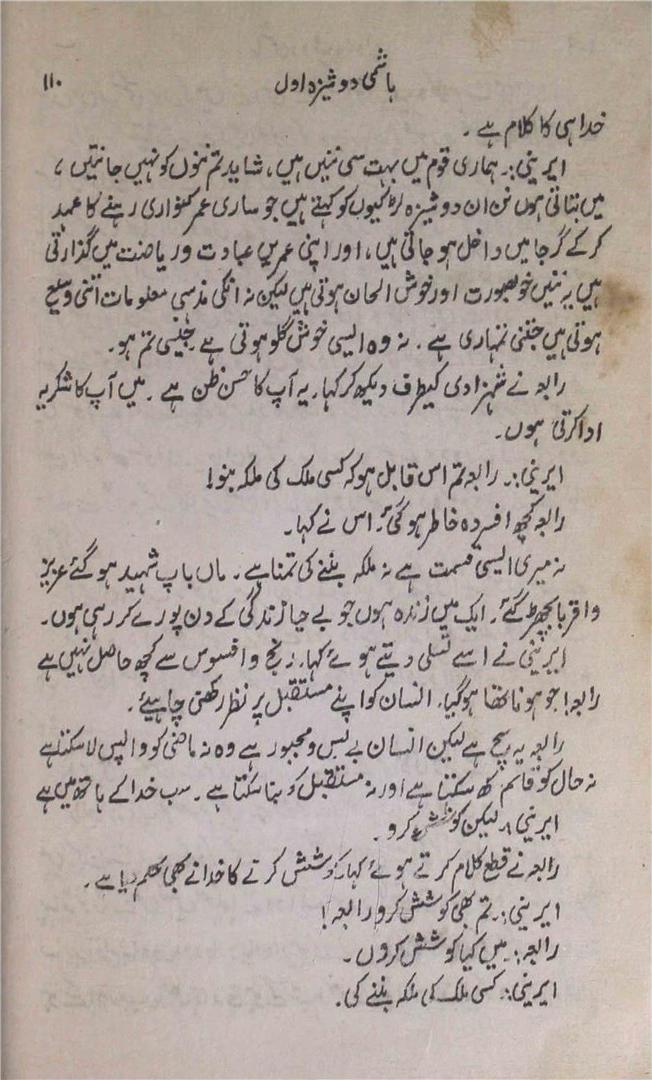 ہاشمی دوشیزہ اول ۱۱۰
خدا ہی کا کلام ہے ۔
ایرینی:۔ ہماری قوم میں بہت سی ننیں ہیں، شاید تم ننوں کو نہیں جانتیں ،
میں بتاتی ہوں نن ان دوشیزہ لڑکیوں کو کہتے ہیں جو ساری عمر کنواری رہنے کا عہد
کر کے گرجا میں داخل ہو جاتی ہیں، اور اپنی عمریں عبادت و ریاضت میں گذارتی
ہیں یہ ننیں خوبصورت اور خوش الحان ہوتی ہیں لیکن نہ انکی مذہبی معلومات اتنی وسیع
ہوتی ہیں جتنی تمہاری ہے ۔ نہ وہ ایسی خوش گلو ہوتی ہے جیسی تم ہو۔
رابعہ نے شہزادی کیطرف دیکھ کر کہا، یہ آپ کا حسن ظن ہے ۔ میں آپ کا شکریہ
ادا کرتی ہوں۔
ایرینی:۔ رابعہ تم اس قابل ہو کہ کسی ملک کی ملکہ بنو!
رابعہ کچھ افسردہ خاطر ہو گئی۔ اس نے کہا۔
نہ میری ایسی قسمت ہے نہ ملکہ بننے کی تمنا ہے ۔ ماں باپ شہید ہو گئے عزیز
و اقربا بچھڑ گئے۔ ایک میں زندہ ہوں جو بے حیا زندگی کے دن پورے کر رہی ہوں۔
ایرینی نے اسے تسلی دیتے ہوئے کہا۔ رنج و افسوس سے کچھ حاصل نہیں ہے
رابعہ! جو ہونا تھا ہو گیا، انسان کو اپنے مستقبل پر نظر رکھنی چاہیئے ۔
رابعہ یہ سچ ہے لیکن انسان بے بس و مجبور ہے وہ نہ ماضی کو واپس لا سکتا ہے
نہ حال کو قائم رکھ سکتا ہے اور نہ مستقبل کو بنا سکتا ہے ۔ سب خدا کے ہاتھ میں ہے
ایرینی:۔ لیکن کوشش کرو۔
رابعہ نے قطع کلام کرتے ہوئے کہا، کوشش کرنے کا خدا نے بھی حکم دیا ہے ۔
ایرینی:۔ تم بھی کوشش کرو رابعہ!
رابعہ:۔ میں کیا کوشش کروں ۔
ایرینی:۔ کسی ملک کی ملکہ بننے کی۔